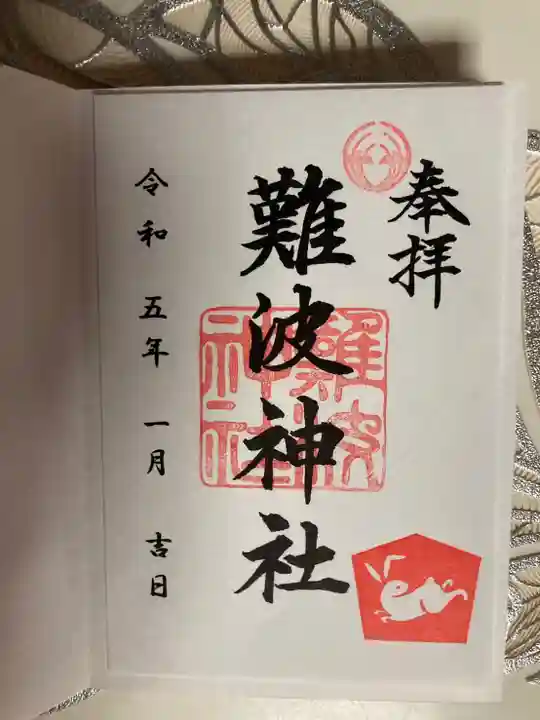 奉拝
難波神社
難波
神社
令和 五年 一月 吉日